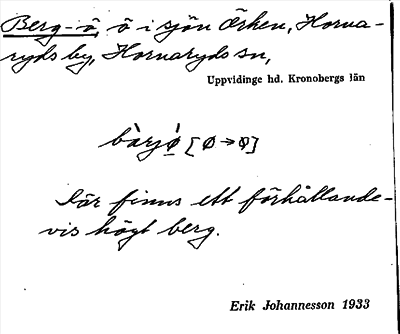 Berg-ö, ö i sjön Örken, Horna-
ryds by, Hornaryds sn,
Uppvidinge hd. Kronobergs län
bàrjǿ [ø→ø]
Där finns ett förhållande-
vis högt berg.
Erik Johannesson 1933